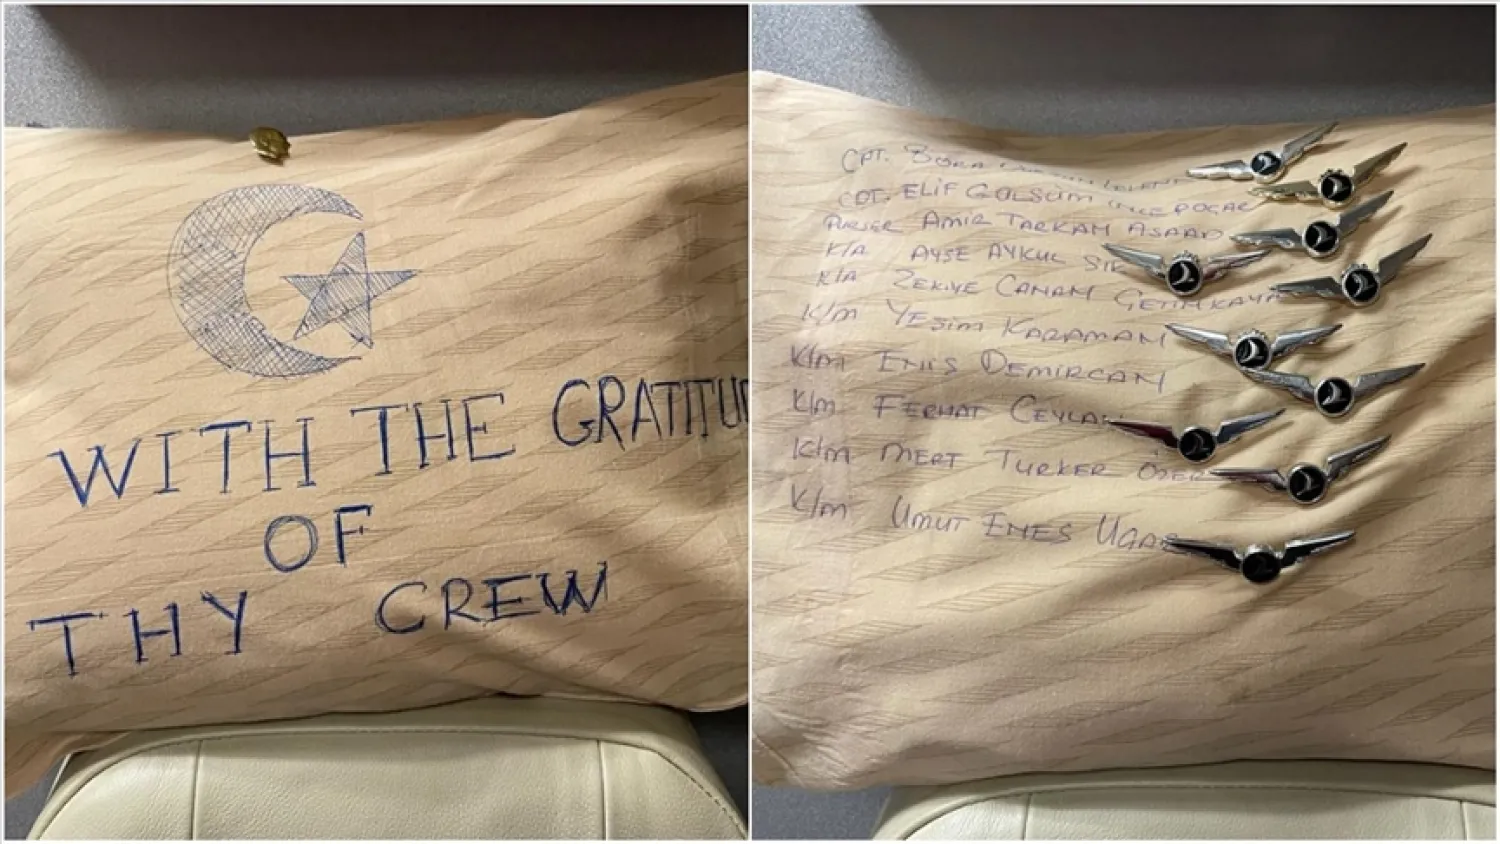 WITH THE GRATITU
OF
THY CREW
CPT. BORA
CPT. ELIF GÜLSÜM
PURSER AMİR TARKAM ASAAD
K/A AYŞE AYKUL
K/A ZEKİYE CANAM ÇETİNKAYA
K/M YEŞİM KARAMAN
K/M ENİS DEMİRCAN
K/M FERHAT CEYLAN
K/M MERT TURKER ÖZER
K/M UMUT ENES